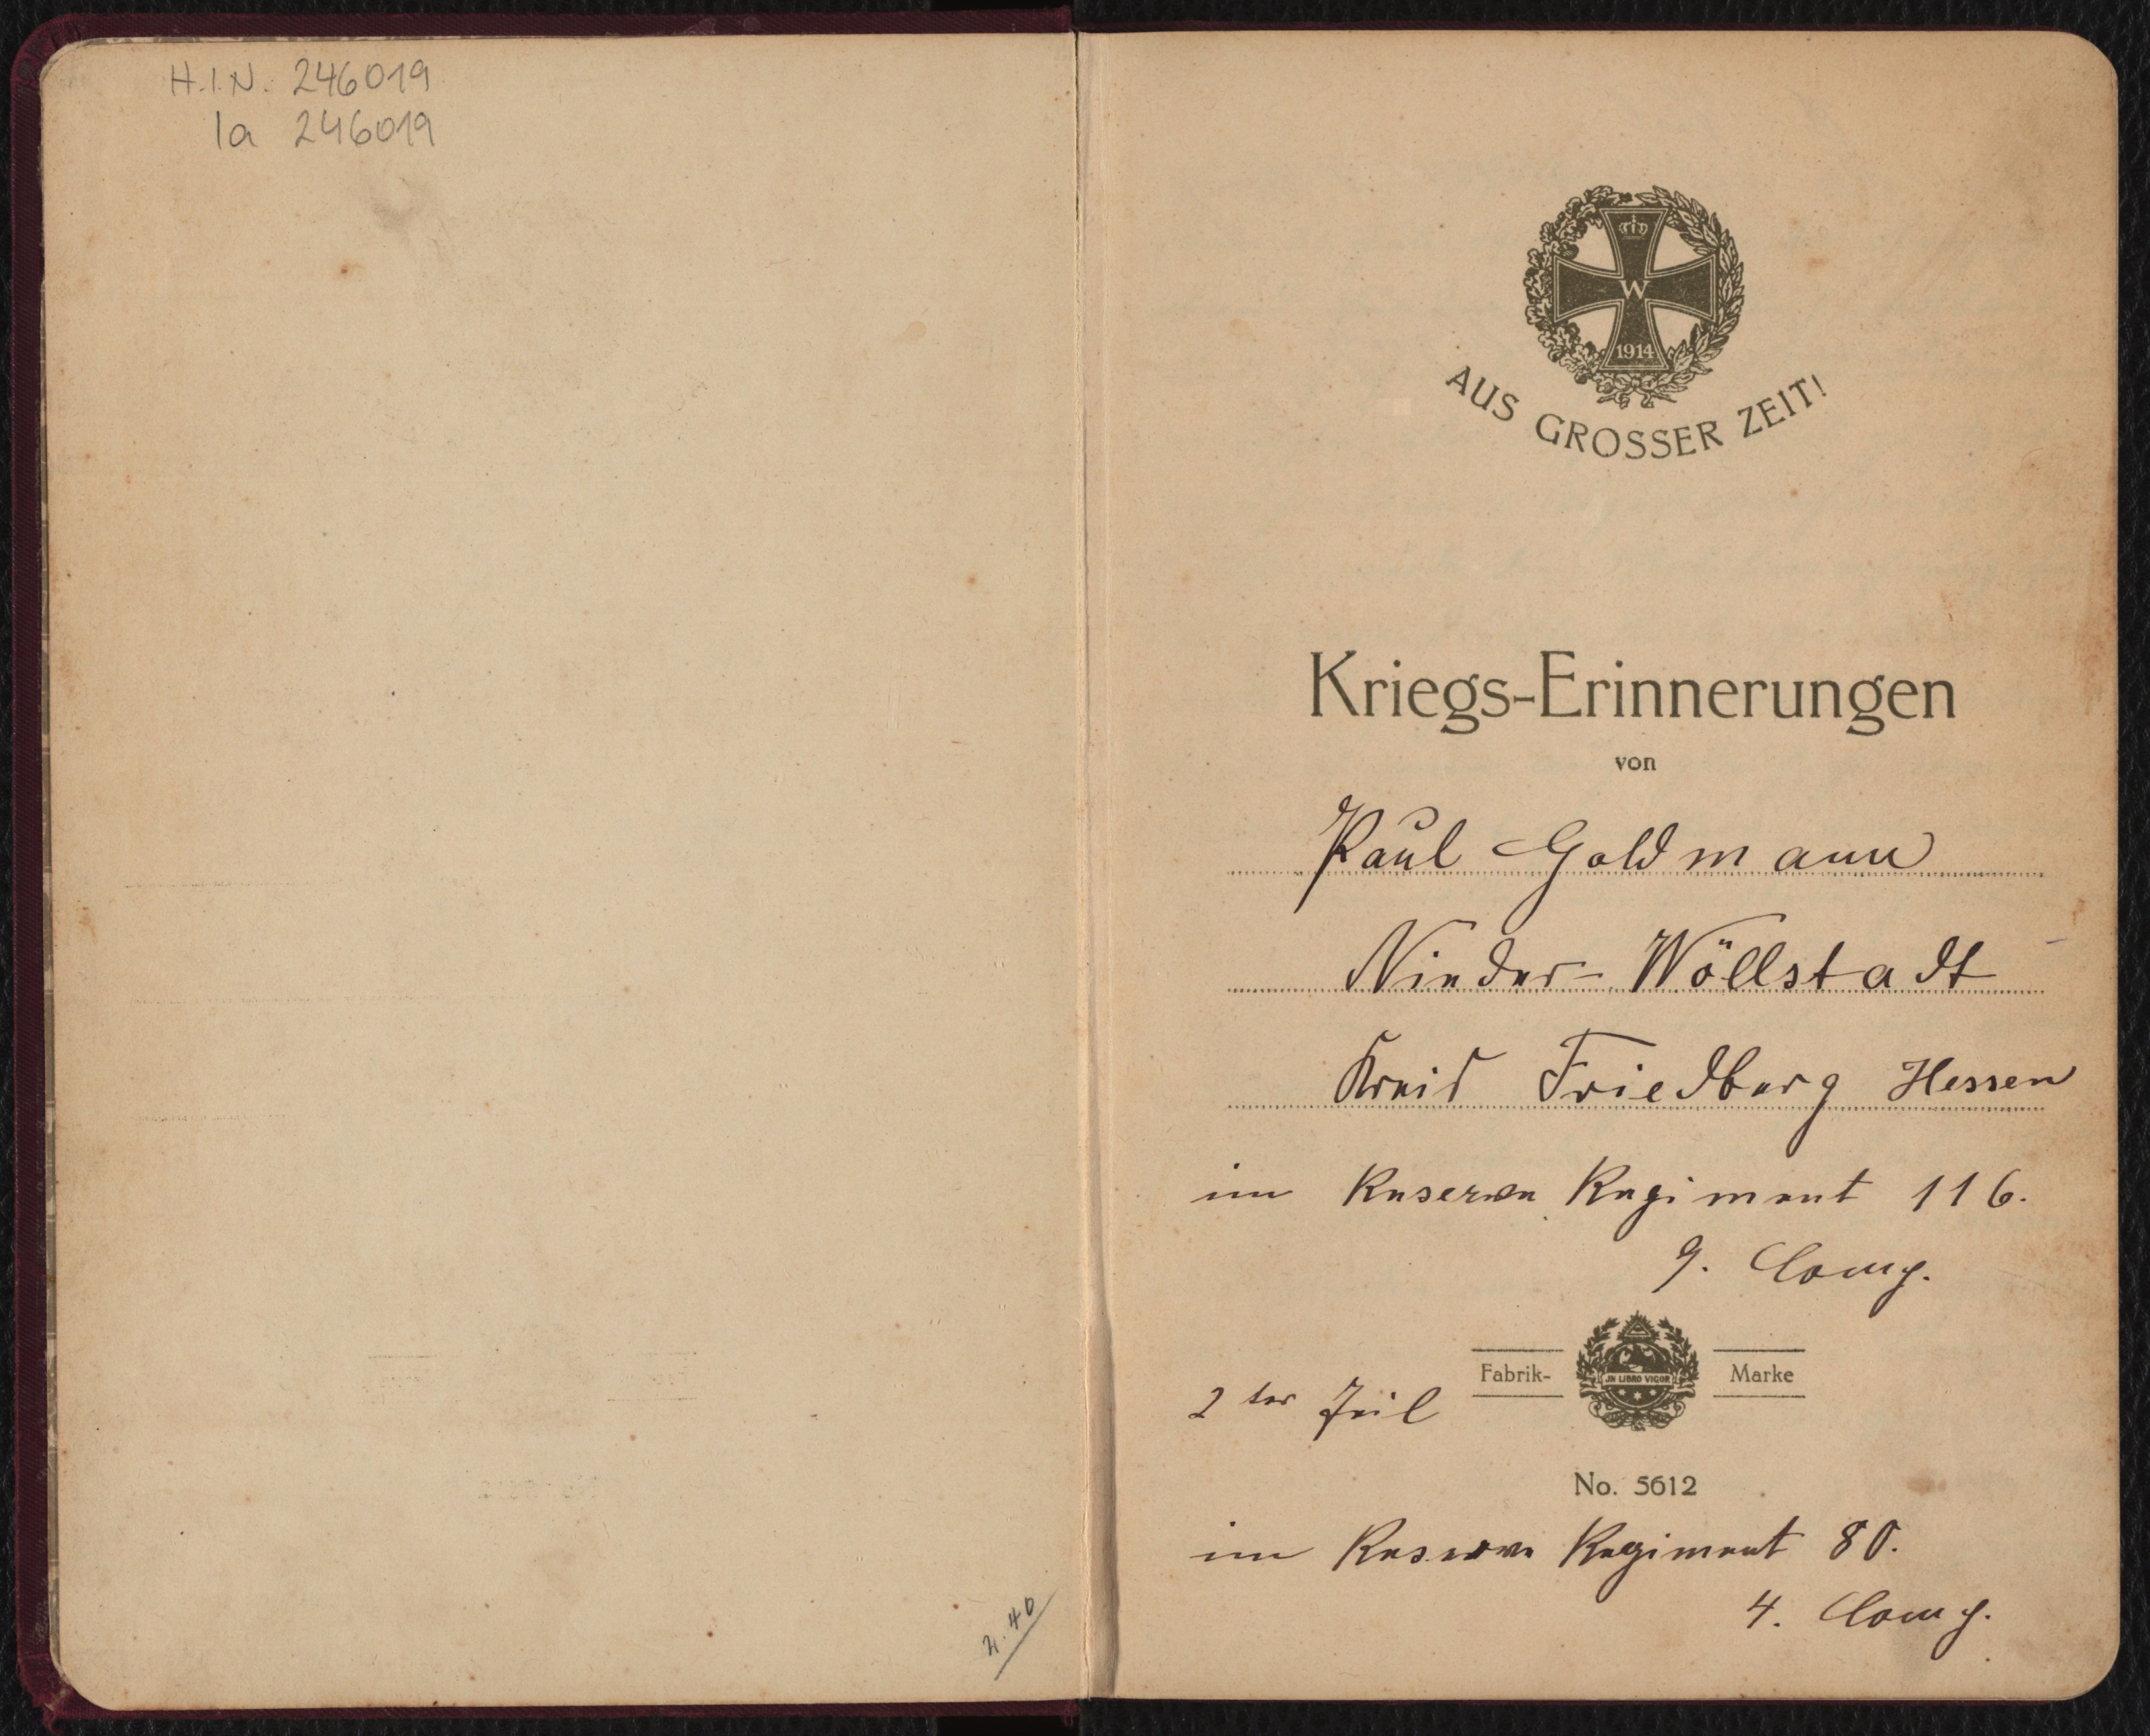 H.I.N. 246019
Ia 246019
W
1914
AUS GROSSER ZEIT!
Kriegs-Erinnerungen
von
Paul Goldmann
Nieder-Wöllstadt
Kreis Friedberg Hessen
im Reserve Regiment 116.
9. Comp.
Fabrik- IN LIBRO VIGOR Marke
2ter Teil
No. 5612
im Reserve Regiment 80.
4. Comp.